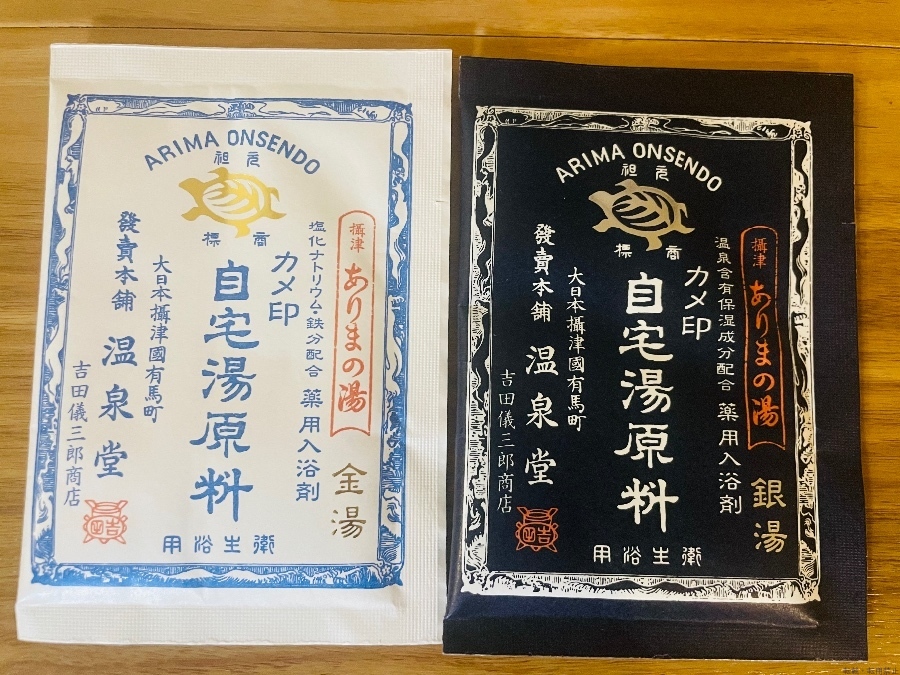 ARIMA ONSENDO
元祖
商標
攝津
ありまの湯
金湯
塩化ナトリウム・鉄分配合 薬用入浴剤
カメ印
自宅湯原料
大日本攝津國有馬町
發賣本舗 温泉堂
吉田儀三郎商店
衛生浴用
ARIMA ONSENDO
元祖
商標
攝津
ありまの湯
銀湯
温泉含有保湿成分配合 薬用入浴剤
カメ印
自宅湯原料
大日本攝津國有馬町
發賣本舗 温泉堂
吉田儀三郎商店
衛生浴用